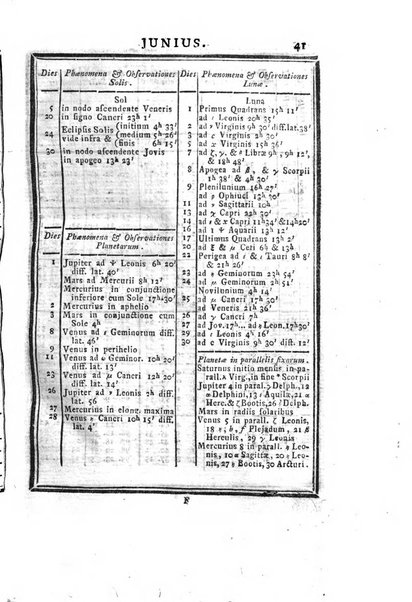 JUNIUS. 41
Dies Phænomena & Observationes
Solis.
Sol
5 in nodo ascendente Veneris
20 in signo Cancri 23h 36'
24 Eclipsis Solis (initium 4h 33'
vide infra & (medium 5h
(finis 6h 15'
30 in nodo ascendente Jovis
in apogeo 13h 23'
Dies Phænomena & Observationes
Planetarum.
1 Jupiter ad Ψ Leonis 6h 20'
diff. lat. 40'
Mars ad Mercurii 8h 12'
Mercurius in conjunctione
inferiore cum Sole 17h30'
2 Mercurius in aphelio
3 Mars in conjunctione cum
Sole 4h
8 Venus ad ε Geminorum diff.
lat. 46'
9 Venus in perihelio
11 Venus ad ω Gemin. 10h 20'
diff. lat. 13'
23 Venus ad μ Cancri diff. lat.
40'
26 Jupiter ad Leonis diff.
lat. 56
27 Mercurius in elong. maxima
28 Venus Cancri 10h 15' diff.
lat. 4'
Dies Phænomena & Observationes
Lunæ.
Luna
1 Primus Quadrans 15h 11'
ad σ Leonis 15h
2 ad ν Virginis 9h 30' diff.lat.38'
3 ad γ Virginis 2h 30'
5 ad Virginis 9h
7 ad ζ, γ & Libræ 9h, 12h,
& 18h 48'
8 Apogea ad , & Scorpii
6h 38' & 4h 30'
9 Plenilunium 16h 30'
10 ad Ophiuci 19h
11 ad Sagittæ 12h 36'
14 ad Capri 22h 11'
15 ad & γ Capri 11h34'&14h20'
16 ad & Ψ Aquarii 13h
17 Ultimus Quadrans 11h
20 ad Ceti 13h 30'
22 Perigea ad & Tauri 5h 8'
& 21h 26'
23 ad Geminorum 23h 54'
24 ad μ Geminorum 1h 36'
Novilunium 4h 34'
25 ad Cancri 17h 30'
ad Mercurii 12h 36'
26 ad Veneris 21h 36'
27 ad Jov.17h... ad Leon.17h30'
28 ad Leonis 17h30'
29 ad Virginis 9h 30' diff. 12'
30
Planetæ in parallelis fixarum.
Saturnus initio mensis in pa-
rall. Virg., fine Scorpii
Jupiter 4 in parall. γ Delph., 19
Delphini, 13 Aquilæ, 21
Herc. & ζ Bootis, 26 Delph.
Mars in radiis solaribus
Venus 5 in parall. Leonis,
18 Plejadum, 21
Herculis, 29 γ Leonis
Mercurius 8 in parall. Leo-
nis, 10 Sagittæ, 20 Leo-
nis, 27 Bootis, 30 Arcturi.
F